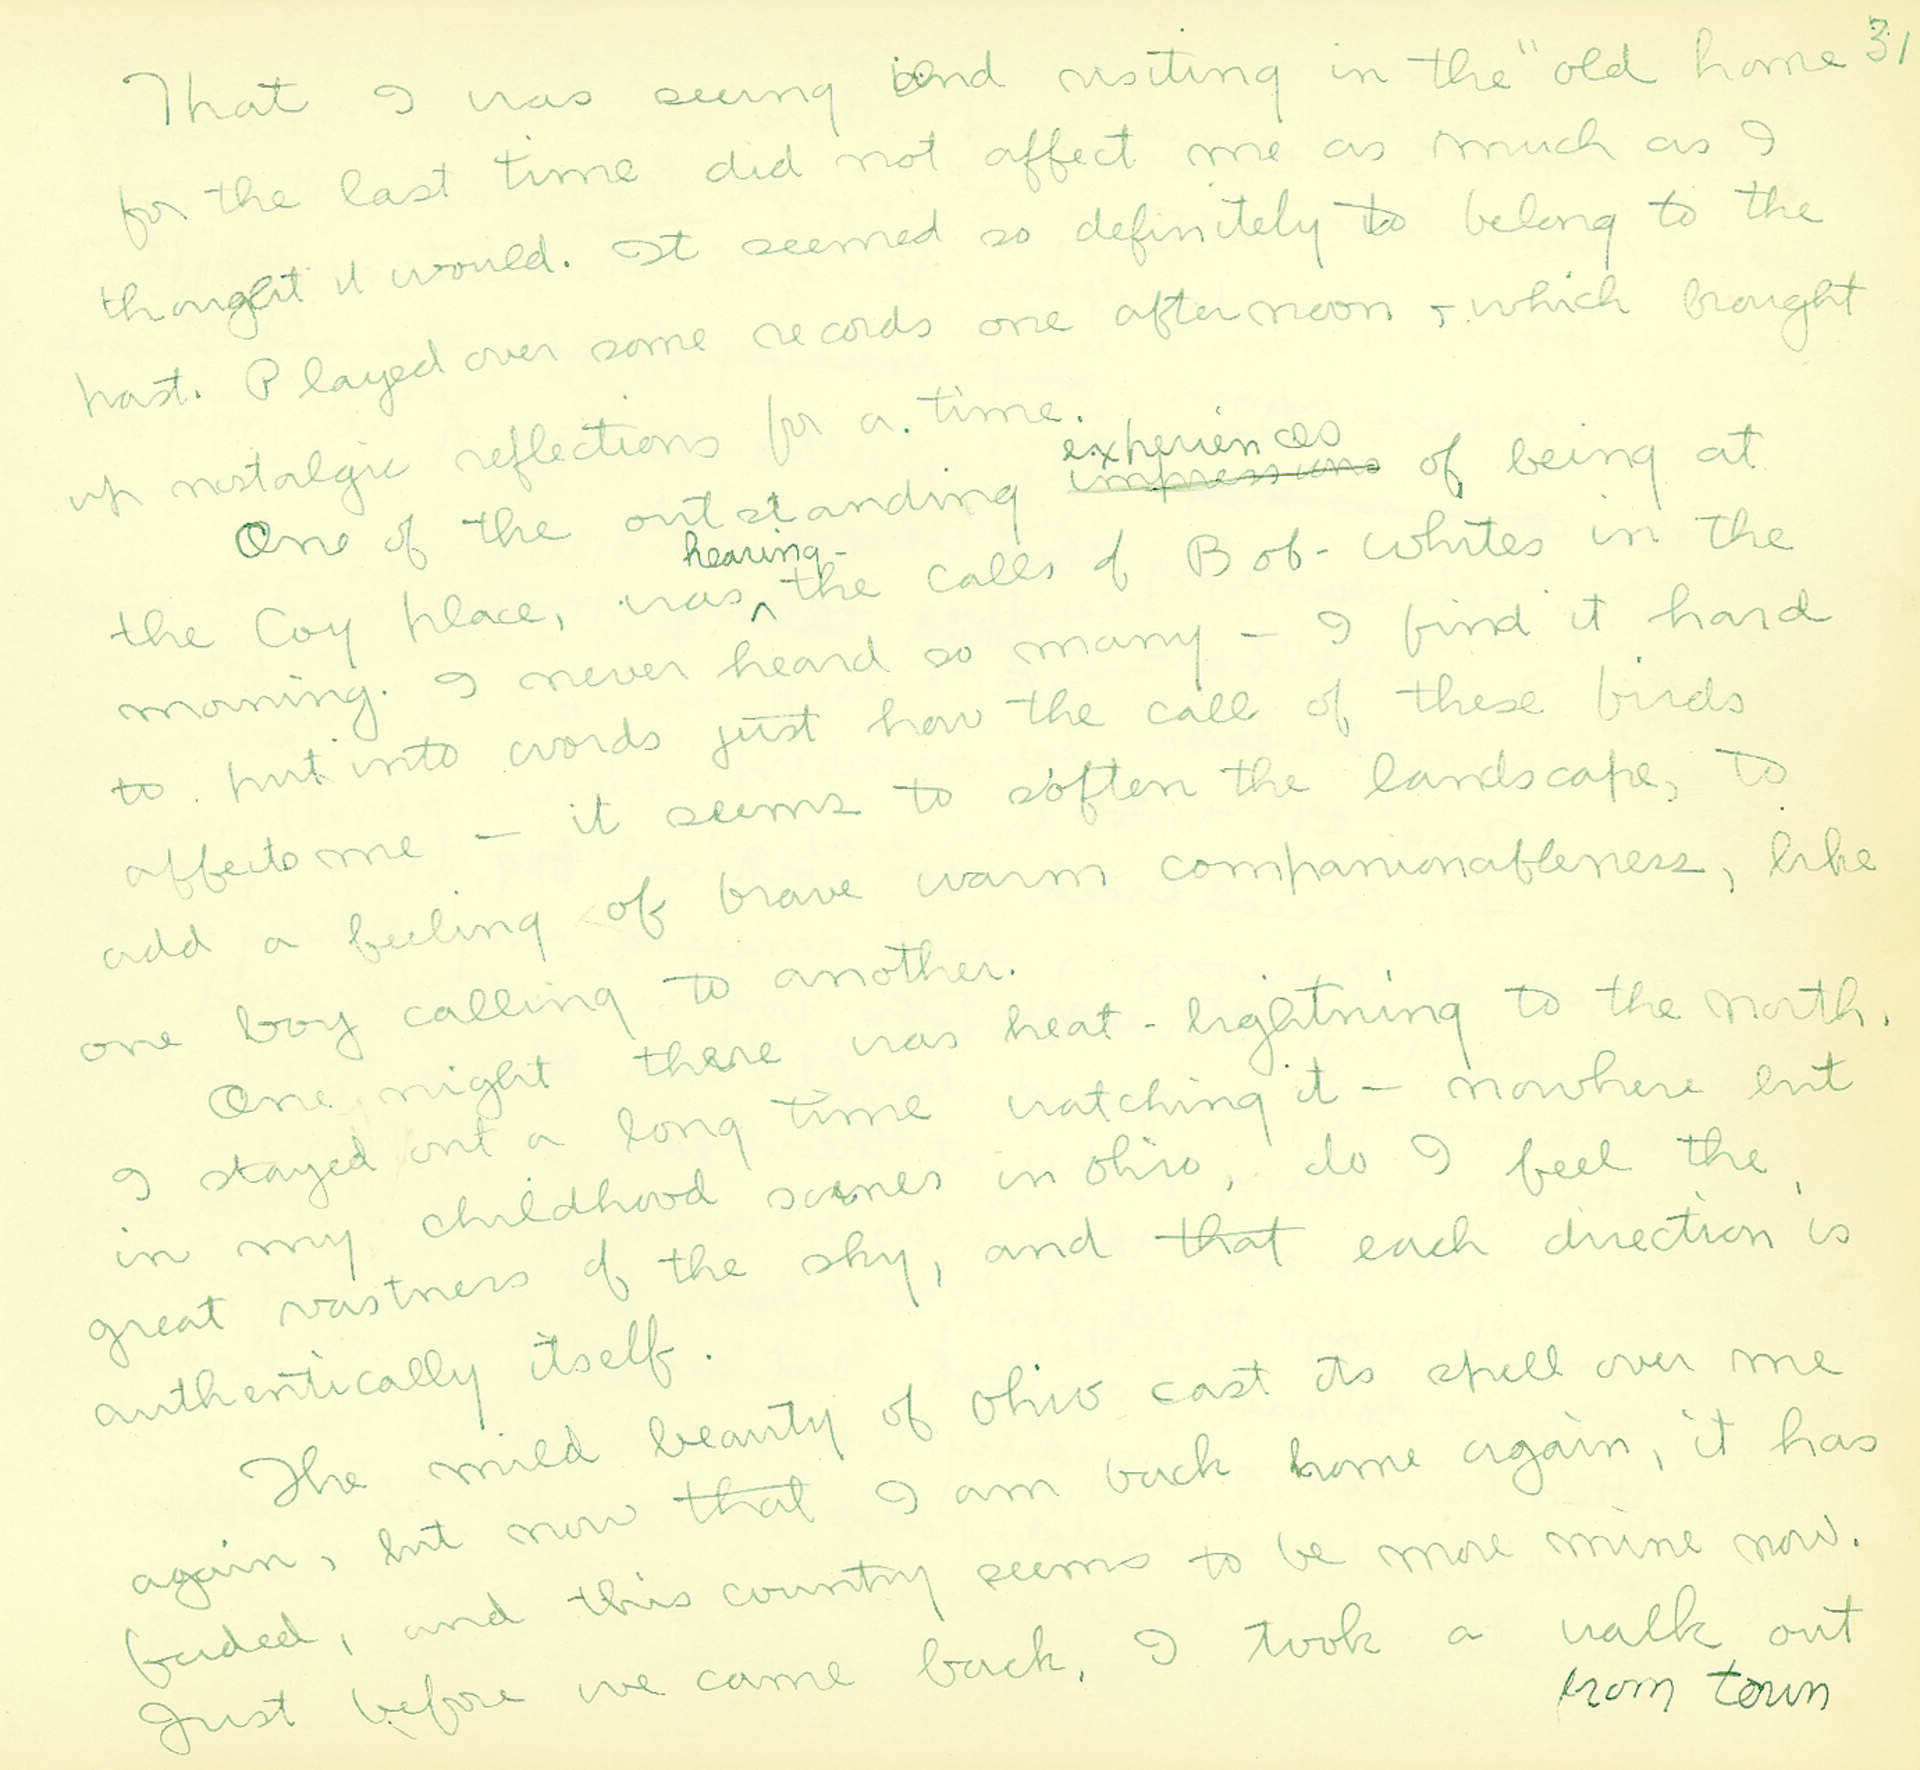 31
That I was seeing and visiting in the "old home
for the last time did not affect me as much as I
thought it would. It seemed so definitely to belong to the
past. Played over some records one afternoon - which brought
up nostalgic reflections for a time.
experiences
One of the outstanding impressions of being at
hearing -
the Coy place, was ^ the calls of Bob-whites in the
morning. I never heard so many - I find it hard
to put into words just how the call of these birds
affects me - it seems to soften the landscape, to
add a feeling of brave warm companionableness, like
one boy calling to another.
One night there was heat-lightning to the north.
I stayed out a long time watching it - nowhere but
in my childhood scenes in Ohio, do I feel the
great vastness of the sky, and that each direction is
authentically itself.
The mild beauty of Ohio cast its spell over me
again, but now that I am back home again, it has
faded, and this country seems to be more mine now.
Just before we came back, I took a walk out
from town